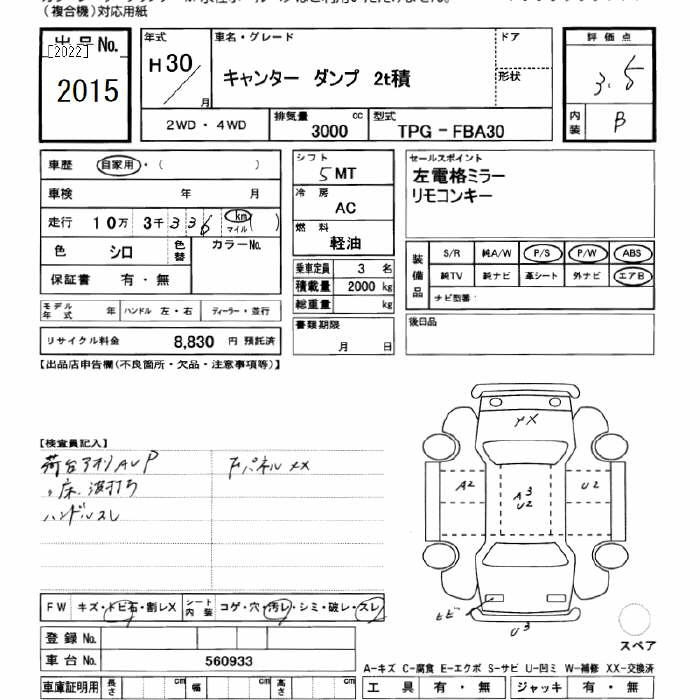 （複合機）対応用紙
出品No. [2022] 2015
年式 H30 / 月
車名・グレード キャンター ダンプ 2t積
ドア
形状
評価点 3.5
内装 B
2WD・4WD
排気量 3000 cc
型式 TPG-FBA30
車歴 自家用・（ ）
車検 年 月
走行 10万 3千 336 km マイル ( )
色 シロ 色替 カラーNo.
保証書 有・無
モデル年式 年 ハンドル 左・右 ディーラー・並行
リサイクル料金 8,830 円 預託済
シフト 5 MT
冷房 AC
燃料 軽油
乗車定員 3 名
積載量 2000 kg
総重量 kg
書類期限 月 日
セールスポイント
左電格ミラー
リモコンキー
装備品 S/R 純A/W P/S P/W ABS
純TV 純ナビ 革シート 外ナビ エアB
ナビ型番：
後日品
【出品店申告欄(不良箇所・欠品・注意事項等)】
【検査員記入】
荷台アオリAUP
〃床、波打ち
ハンドルスレ
FパネルXX
YX
A2
A3
U2
U2
ヒビ
U3
スペア
FW キズ・トビ石・割レX シート内装 コゲ・穴・汚レ・シミ・破レ・スレ
登録No.
車台No. 560933
車庫証明用 長さ cm 幅 cm 高さ cm
A-キズ C-腐食 E-エクボ S-サビ U-凹ミ W-補修 XX-交換済
工具 有・無 ジャッキ 有・無